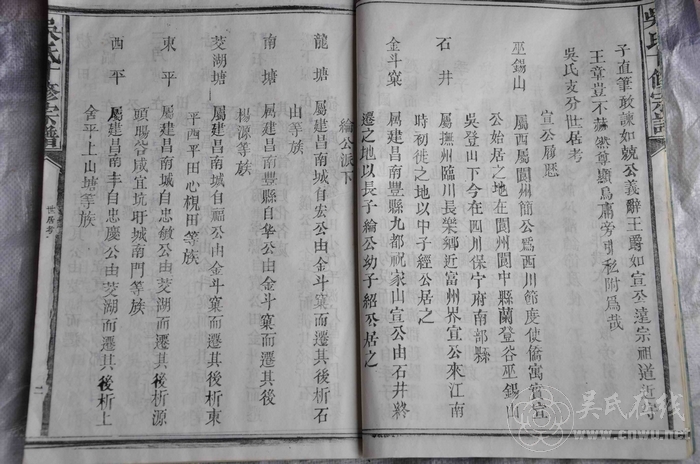 吳氏十修宗譜
子直筆敢諫如兢公義辭王爵如宣公遠宗祖道近守
王章豈不赫然尊顯烏庸旁引私附爲哉
吳氏支分世居考
宣公屐歷
巫錫山 屬西屬閬州簡公爲西川節度使僑寓賓宣
公始居之地在閬州閬中縣蘭登谷巫錫山
吳登山下今在四川保宁府南部縣
石井 屬撫州臨川長樂鄉近富州界宣公來江南
時初徙之地以中子經公居之
金斗窠 屬建昌南豐縣九都祝家山宣公由石井終
遷之地以長子綸公幼子紹公居之
綸公派下
龍塘 屬建昌南城自宏公由金斗窠而遷其後析石
山等族
南塘 屬建昌南豐縣自华公由金斗窠而遷其後
楊源等族
茭湖塘 屬建昌南城自福公由金斗窠而遷其後析東
平西平田心梘田等族
東平 屬建昌南城自忠敏公由茭湖而遷其後析源
頭暘谷咸宜坑圩城南門等族
西平 屬建昌南丰自忠慶公由茭湖而遷其後析上
舍平上山塘等族
吳氏十修宗譜
世居考
二
吴氏在线
www.cnwu.net